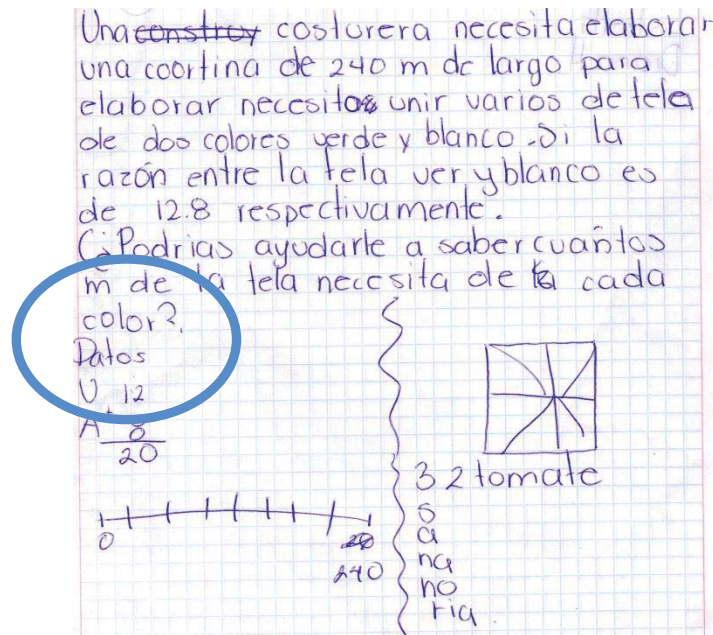 Una constroy costurera necesita elaborar
una coortina de 240 m de largo para
elaborar necesitos unir varios de tela
de dos colores verde y blanco. Si la
razón entre la tela ver y blanco es
de 12.8 respectivamente.
¿Podrias ayudarle a saber cuantos
m de la tela necesita de la cada
color?.
Datos
V 12
A + 8
20
0
240
32 tomate
s
a
na
ho
ria.